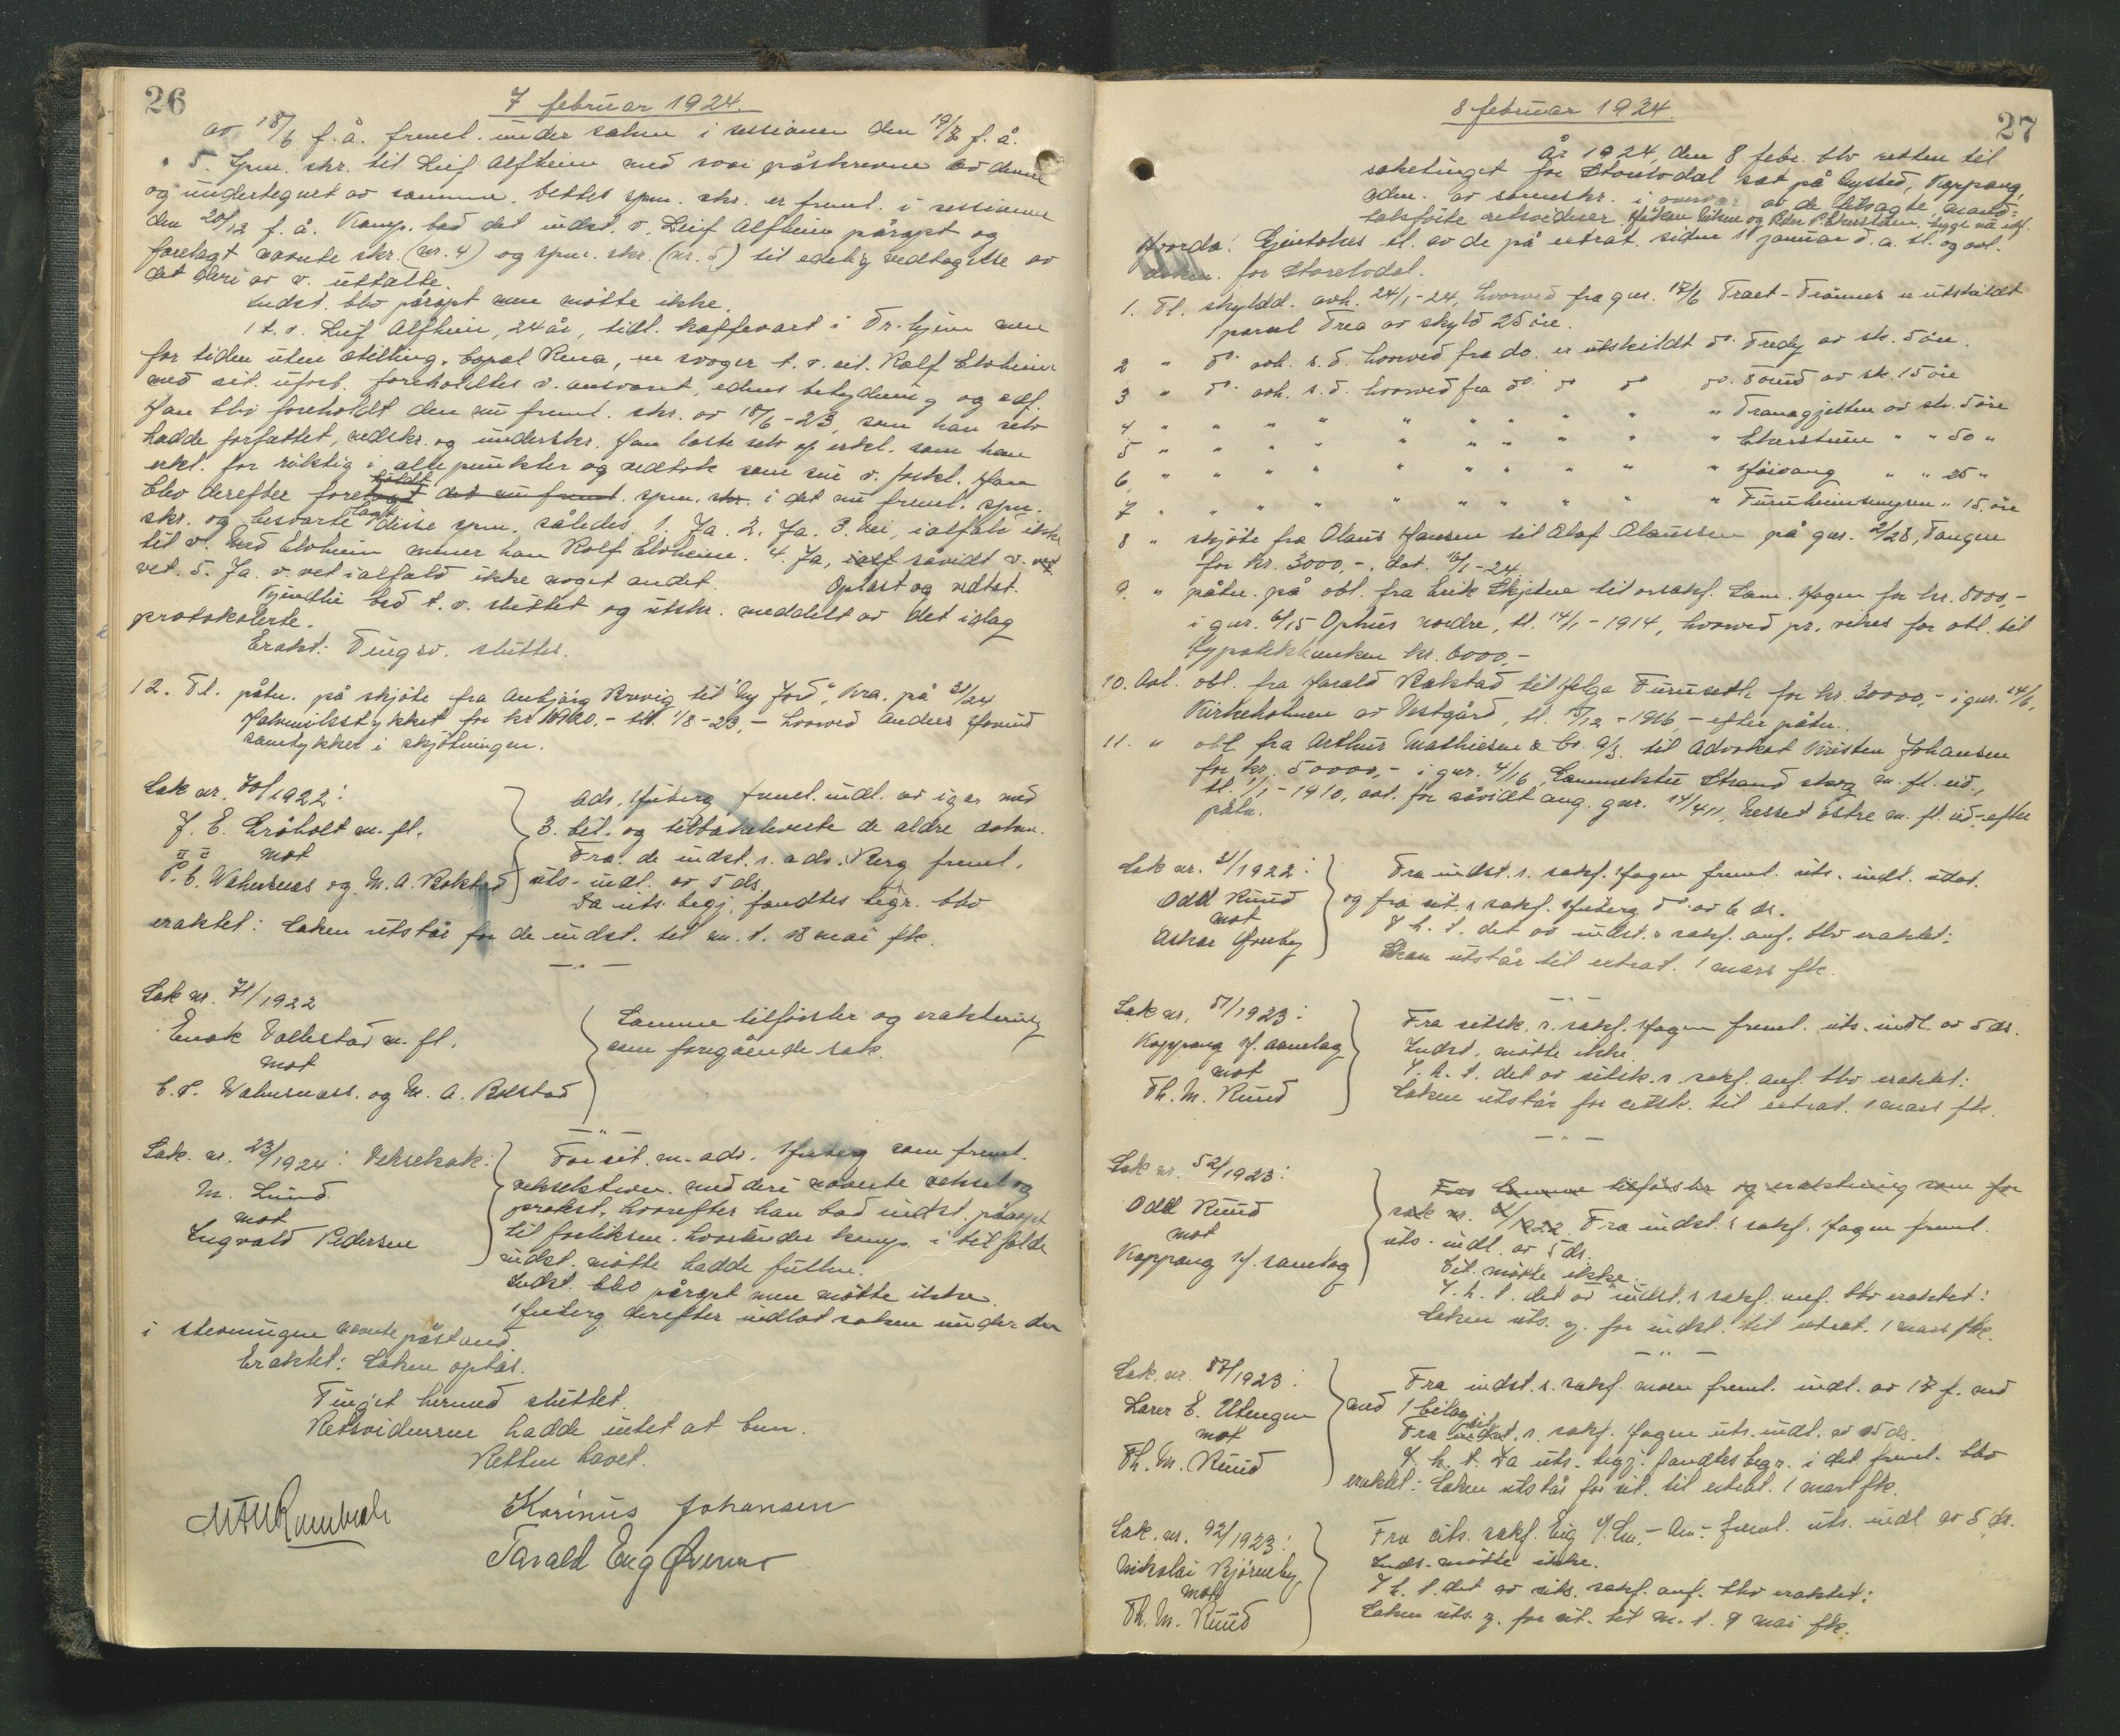 26
7 februar 1924.
av 18/6 f.å. freml. under saken i sessionen den 19/7 f.å.
5. Spm. skr. til Leif Alfheim med svar påskrevne av denne
og undertegnet av samme. Dettes spm. skr. er freml. i sessionen
den 20/12 f.å. Komp. bad det indst. v. Leif Alfheim påropt og
forelagt nævnte skr. (nr. 4) og spm. skr. (nr. 5) til edelig vedtagelse av
det deri av v. uttalte.
Indst. blev påropt men møtte ikke.
1 t. v. Leif Alfheim, 24 år, tidl. kaffevært i Tr.hjem men
for tiden uten stilling, bopæl Rena, en svoger t. v. cit. Rolf Elvheim
med cit. uforb. foreholdtes v. ansvaret, edens betydning og edf.
Han blev foreholdt den nu freml. skr. av 18/6-23, som han selv
hadde forfattet, nedskr. og underskr. Han læste selv op erkl. som han
erkl. for riktig i alle punkter og vedtok som sin v. forkl. Han
blev derefter foreholdt spm. i det nu freml. spm.
skr. og besvarte disse spm. således 1. Ja. 2. Ja. 3. Nei, ialfald ikke
til v. Med Elvheim mener han Rolf Elvheim. 4. Ja, såvidt v.
vet. 5. Ja. v. vet ialfald ikke noget andet. Oplæst og vedtat.
bad t. v. sluttet og utskr. meddelt av det idag
protokolerte.
Erakt: Tingsv. sluttes.
12. Tl. påtn. på skjøte fra Anbjørg Brevig til "Ny Jord", Kra. på 31/24
for kr. - til. 1/8-23, - hvorved Anders Hovind
samtykker i skjøtningen.
Sak nr. 70/1922:
J. E. Gråholt m. fl.
mot
P. C. Wahrenas og M. A. Bokstad
Adv. Huberg freml. indl. av igår med
3. bil. og tilbakeleverte de ældre dokum.
Fra de indst. s. adv. Berg freml.
uts. indl. av 5 ds.
Da uts. begj. fandtes begr. blev
eraktet: Saken utstår for de indst. til m. t. 13 mai fk.
Sak nr. 71/1922
Enok Vollestad m. fl.
mot
C. P. Wahrenas. og M. A. Bokstad
Samme tilførsler og eraktning
som foregående sak.
Sak. nr. 23/1924: Vekselsak:
M. Lund
mot
Ingvald Pedersen
For cit. m. adv. Huberg som freml.
vekselstevn. med deri nævnte veksel og
protest, hvorefter han bad indst. påropt
til forliksm. hvorunder komp. i tilfælde
indst. møtte hadde fuldm.
Indst. blev påropt men møtte ikke.
Huberg derefter indlot saken under den
i stevningen nævnte påstand.
Eraktet: Saken optas.
Tinget hermed sluttet.
Retsvidnerne hadde intet at bem.
Retten hævet.
Karinus Johansen
Tarald Eng Øvernes
27
8 februar 1924.
År 1924, den 8 febr. blev retten til
saketinget for Storelvdal sat på Nysted, Koppang,
adm. av sorenskr. i overvær av de tilsagte mand-
talsførte retsvidner Håken Viken og Peder P. Ekerstuen, begge nu edf.
Hvorda: Gjentokes tl. av de på extrat. siden 1 januar d. a. tl. og avl.
dokum. for Storelvdal.
1. Tl. skyldd. avh. 24/1-24, hvorved fra gnr. 17/6 Træet-Trønnes er utskildt
parcel Trea av skyld 25 øre.
2 " do. avh. s. d. hvorved fra do. er utskildt do. Tredy av sk. 5 øre.
3 " do. avh. s. d. hvorved fra do. do do do. Sound av sk. 15 øre
4 " " " " " " " " " " Tranagjetten av sk. 5 øre
5 " " " " " " " " " " Ekerstuen " " 50 "
6 " " " " " " " " " " Høivang " " 25 "
7 " " " " " " " " " " Furuheimsmyren " 15 øre
8 " skjøte fra Olaus Hansen til Olaf Olaussen på gnr. 2/28, Tangen
for kr. 3000,-, dat. 16/1-24
9. " påtn. på obl. fra Erik Skjetne til orsakf. Sam. Hagen for kr. 8000,-
i gnr. 6/15 Ophus nordre, tl. 14/1-1914, hvorved pr. vikes for obl. til
Hypotekbanken kr. 6000,-
10. Avl. obl. fra Harald Bakstad til Helge Furuseth for kr. 30000,- i gnr. 24/6,
Kirkeholmen av Vestgård, tl. 5/12-1916, - efter påtn.
11. " obl. fra Arthur Mathiesen & Co. A/S. til advokat Kristen Johansen
for kr. 50000,- i gnr. 4/16, Sammelstu Strand skog m. fl. eid.,
tl. 1/1-1910, avl. for såvidt ang. gnr. 14/411, Messet østre m. fl. eid. - efter
påtn.
Sak nr. 21/1922:
Odd Ruud
mot
Askar Øvreby
Fra indst. s. sakf. Hagen freml. uts. indl. udat.
og fra cit. s. sakf. Huberg do. av 6 ds.
I h. t. det av indst. s. sakf. anf. blev eraktet:
Saken utstår til extrat. 1 mars fk.
Sak nr. 51/1923:
Koppang H. samlag
mot
Th. M. Ruud
Fra citsk. s. sakf. Hagen freml. uts. indl. av 5 ds.
Indst. møtte ikke.
I. h. t. det av citsk. s. sakf. anf. blev eraktet:
Saken utstår for citsk. til extrat. 1 mars fk.
Sak nr. 52/1923:
Odd Ruud
mot
Koppang H. samlag
Fra Samme tilførsler og eraktning som for
sak nr. 21/1922. Fra indst. s. sakf. Hagen freml.
uts. indl. av 5 ds.
Cit. møtte ikke.
I. h. t. det av indst. s. sakf. anf. blev eraktet:
Saken uts. g. for indst. til extrat. 1 mars fk.
Sak. nr. 87/1923:
Larer E. Utengen
mot
Th. M. Ruud
Fra indst. s. sakf. Moen freml. indl. av 17 f. md
med 1 bilag
Fra cit. s. sakf. Hagen uts. indl. av 5 ds.
I. h. t. Da uts. begj. fandtes begr. i det freml. blev
eraktet: Saken utstår for cit. til extrat. 1 mars fk.
Sak. nr. 92/1923:
Nikolai Bjørneby
mot
Th. M. Ruud
Fra cits. sakf. Eig freml. uts. indl. av 5 ds.
Inds. møtte ikke.
I h. t. det av cits. sakf. anf. blev eraktet:
Saken uts. g. for cit. til m. t. 9 mai fk.